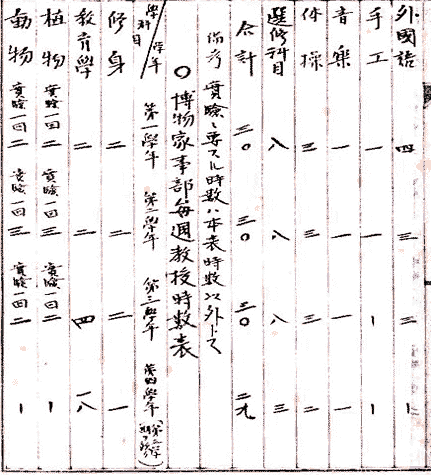 外國語 四 三 三
手工 一 一 | |
音楽 一 一 一 一
体操 三 三 三 二
選修科目 八 八 八 三
合計 三〇 三〇 三〇 二九
備考 實驗ニ要スル時数ハ本表時数以外トス
〇博物家事部每週教授時数表
學科目/學年 第一學年 第二學年 第三學年 第四學年
修身 二 二 二 一
教育學 二 二 四 一八
植物 實驗一回二 實驗一回三 實驗一回二 |
動物 實驗一回二 實驗一回三 實驗一回二 |